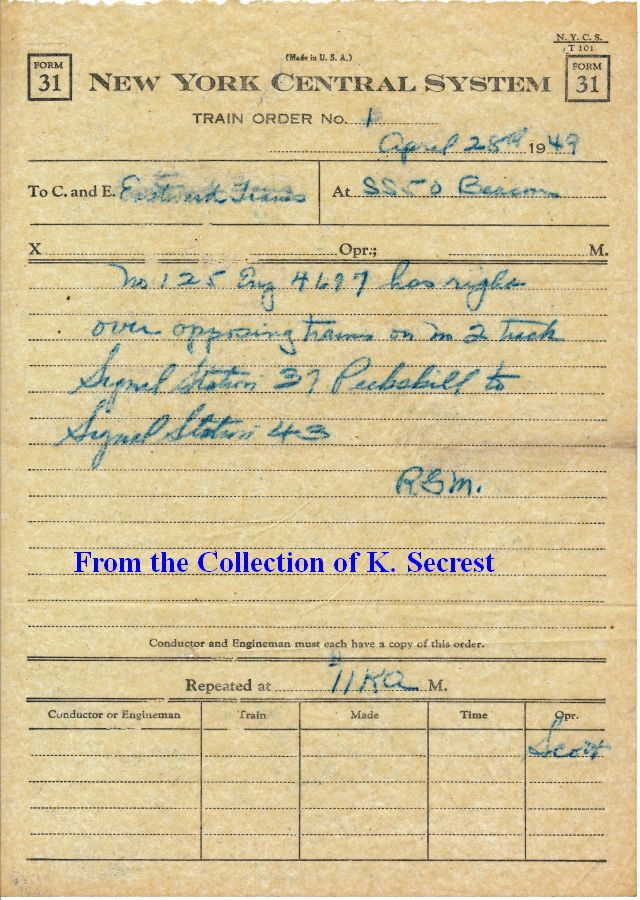 N. Y. C. S.
T 101
(Made in U. S. A.)
FORM 31 NEW YORK CENTRAL SYSTEM FORM 31
TRAIN ORDER No. 1
April 28th 1949
To C. and E. Eastward Trains At SS50 Beacon
X Opr.; M.
No 125 Eng 4697 has right
over opposing trains on no 2 track
Signal Station 37 Peekskill to
Signal Station 43
RGM.
From the Collection of K. Secrest
Conductor and Engineman must each have a copy of this order.
Repeated at M.
Conductor or Engineman Train Made Time Opr.
Scott